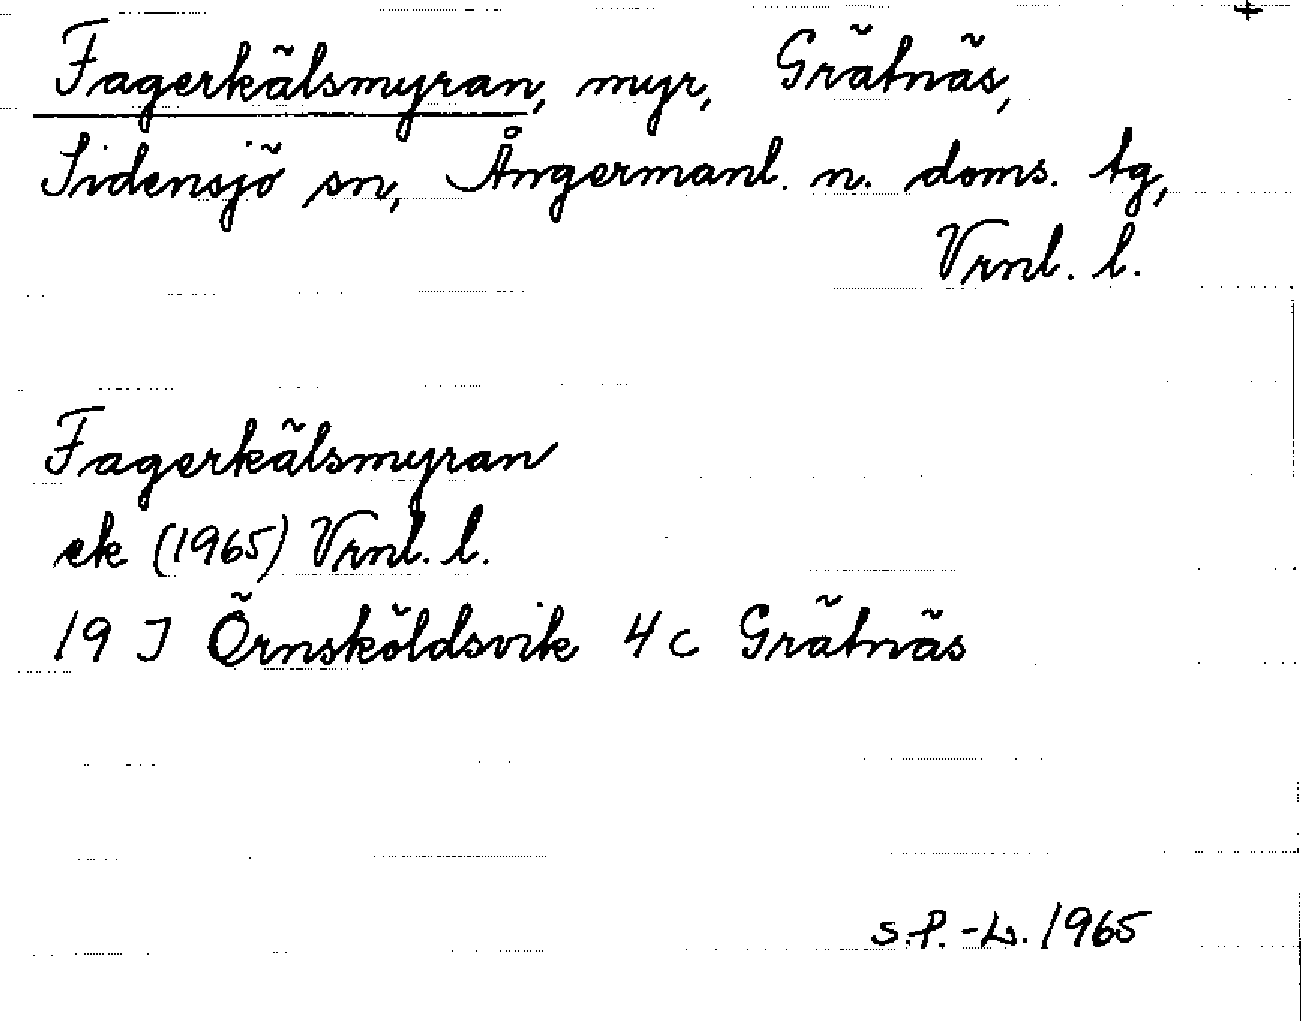 +
Fagerkälsmyran, myr, Grätnäs,
Sidensjö sn, Ångermanl. n. doms. tg,
Vrnl. l.
Fagerkälsmyran
ek (1965) Vrnl. l.
19 J Örnsköldsvik 4 c Grätnäs
S.P.-L. 1965